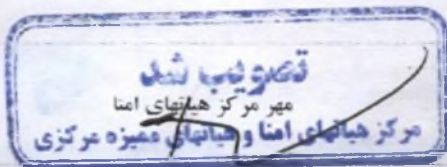 تصویب شد
مهر مرکز هیاتهای امنا
مرکز هیاتهای امنا و هیاتهای ممیزه مرکزی